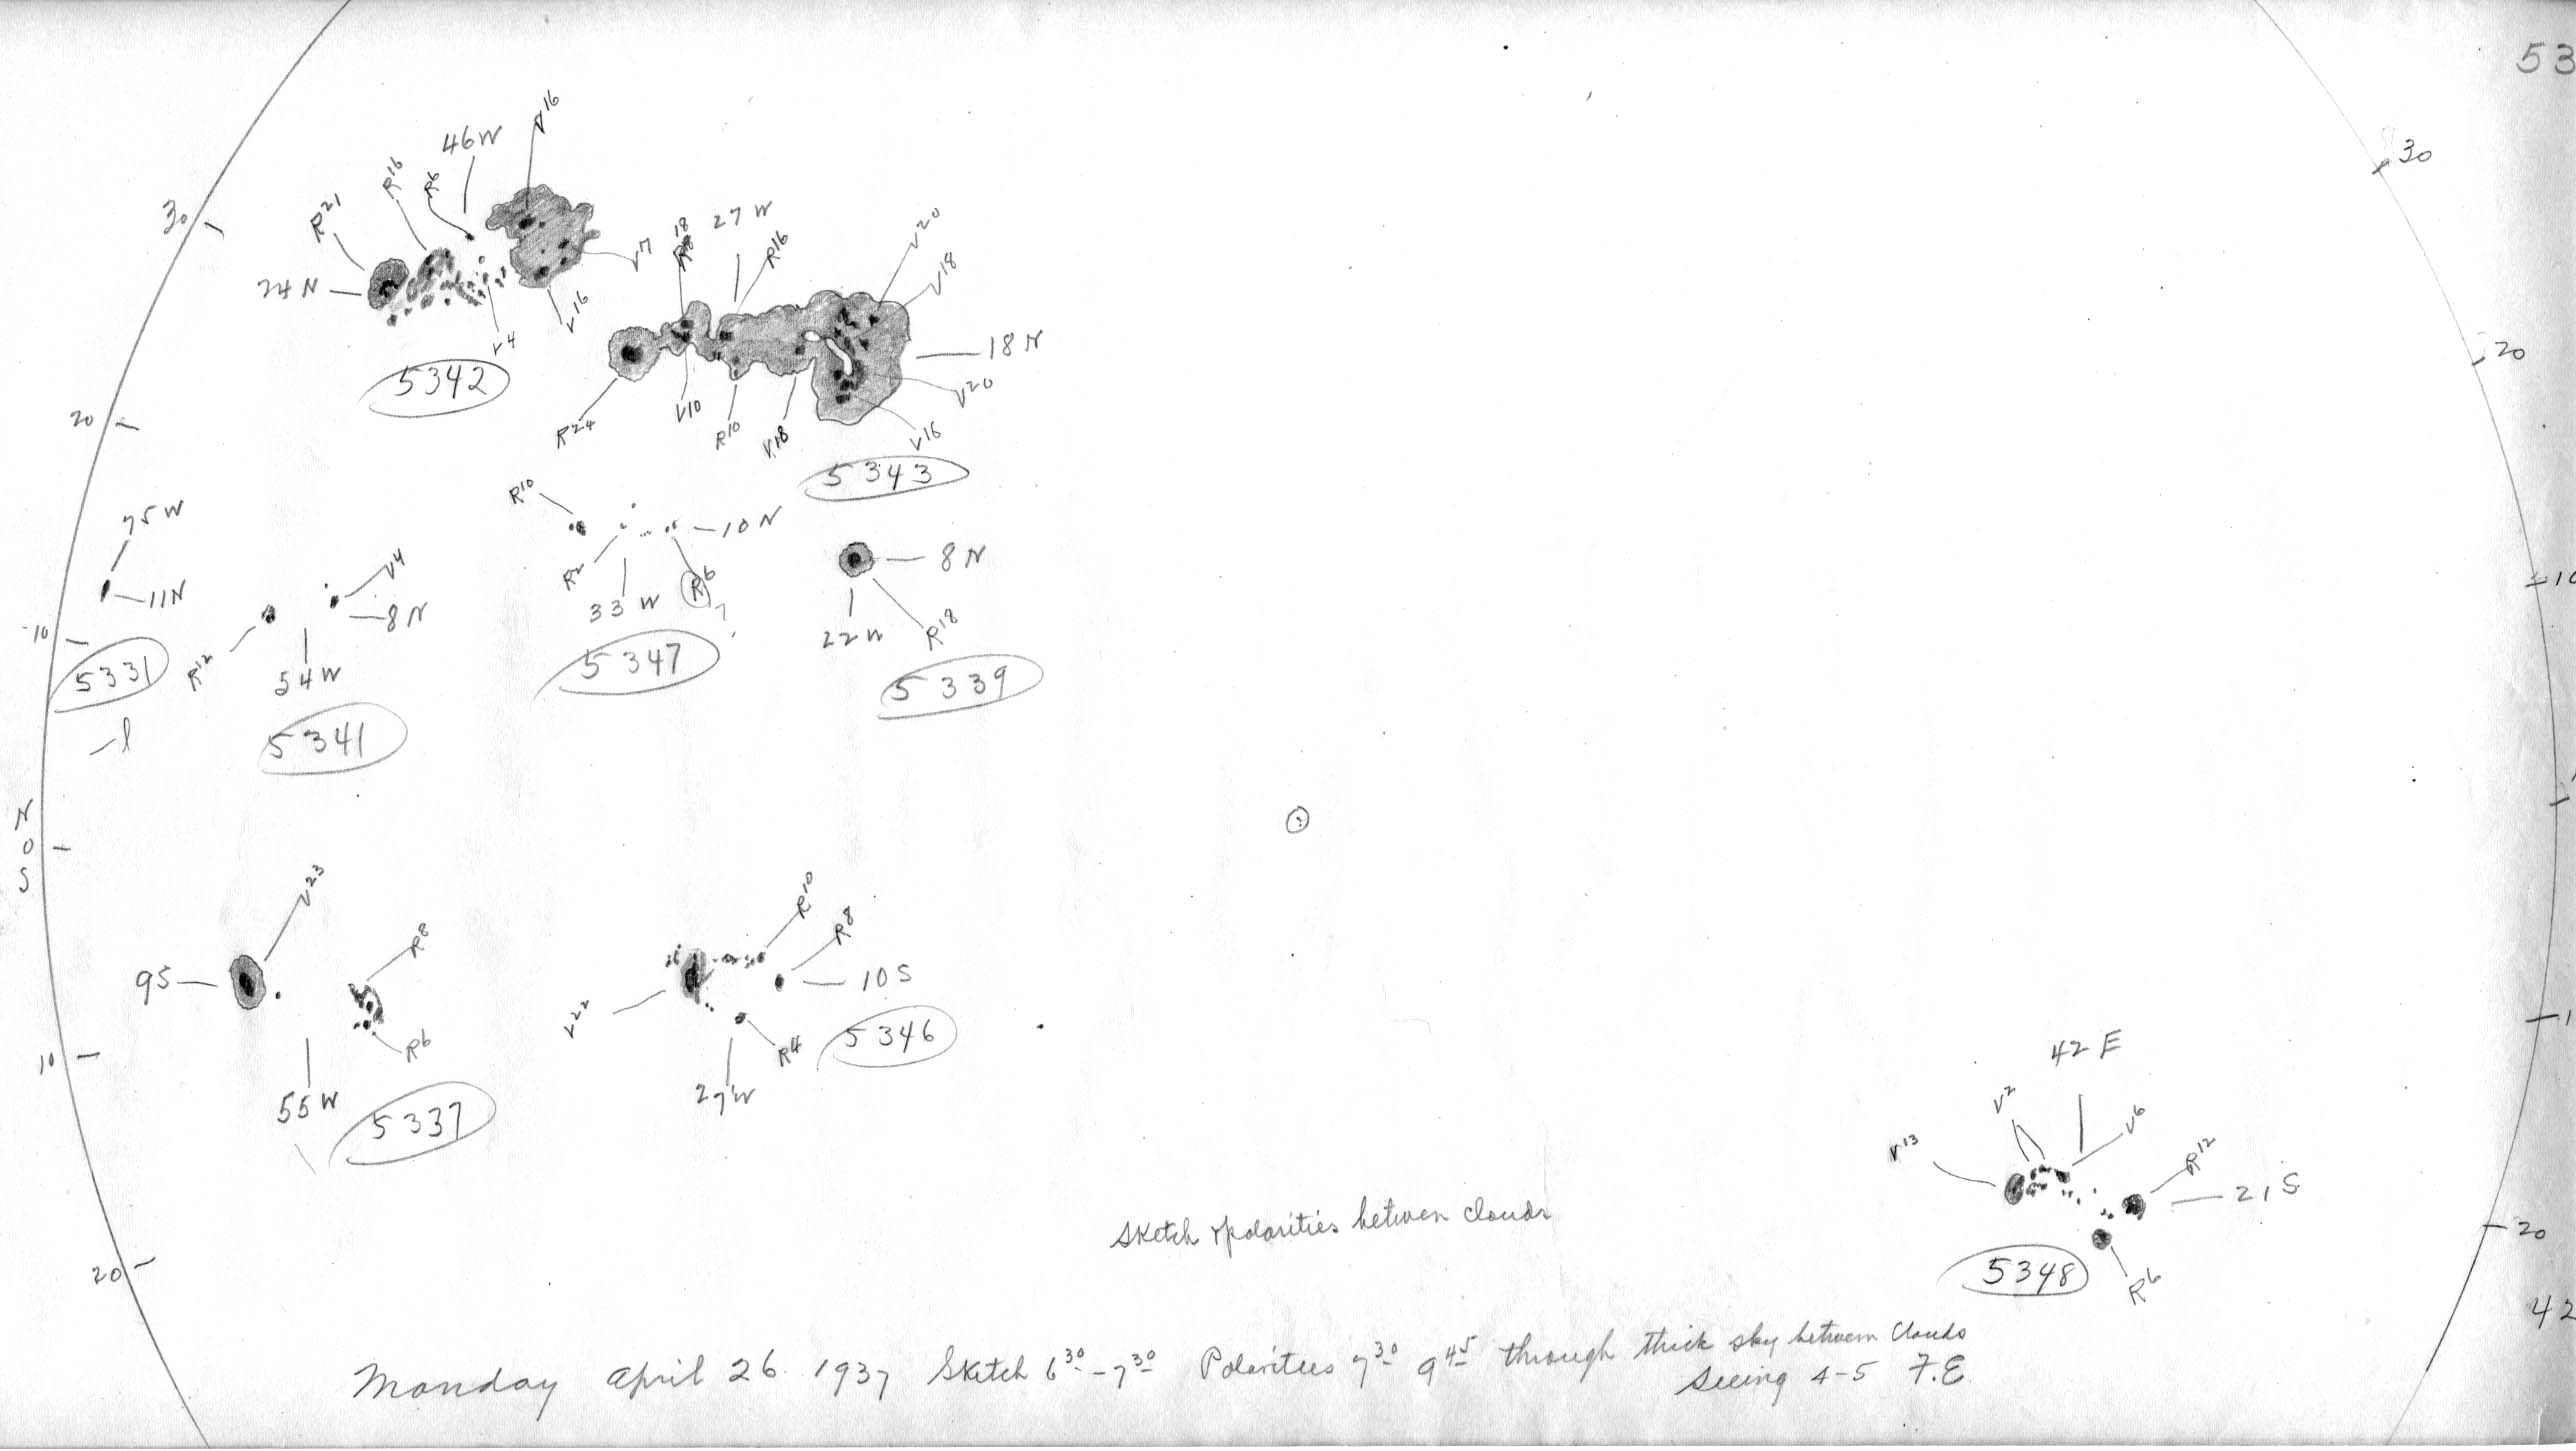 53
30
30
20
20
10
10
N
0
S
10
1
20
20
42
R21
R16
R6
46W
V16
24N
V7
V16
V4
5342
18
R18
27W
R16
V20
V18
18N
V20
V16
R24
V10
R10
V18
5343
75W
11N
5331
-l
V4
8N
R12
54W
5341
R10
10N
R2
33W
R6
?
5347
8N
22W
R18
5339
V23
9S
R8
R6
55W
5337
R10
R8
10S
V22
R4
27W
5346
42E
V2
V6
V13
R12
21S
R6
5348
Sketch & polarities between clouds
Monday April 26 1937 Sketch 6 30 - 7 30 Polarities 7 30 9 45 through thick sky between clouds
Seeing 4-5 F.E.